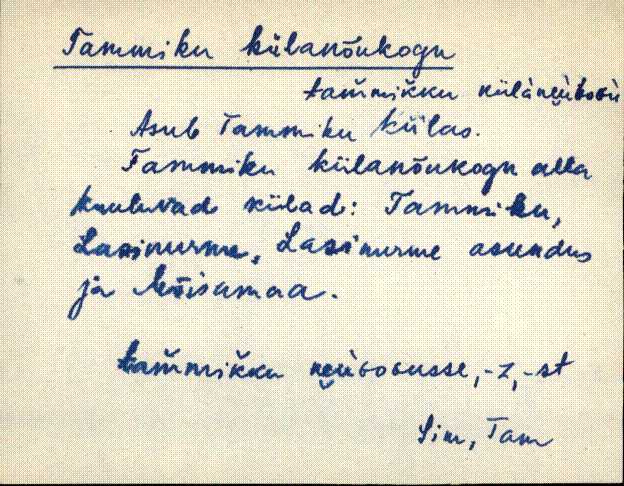 Tammiku külanõukogu
tam̆mik̆ku
Asub Tammiku külas.
Tammiku külanõukogu alla
kuuluvad külad: Tammiku,
Lasinurme, Lasinurme asundus
ja Mõisamaa.
tam̆mik̆ku -z, -st
Sim, Tam